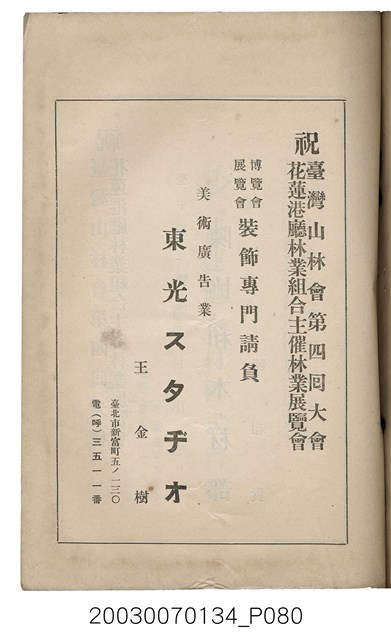 祝
臺灣山林會第四囘大會
花蓮港廳林業組合主催林業展覽會
博覽會
展覽會
裝飾專門請負
美術廣告業
東光スタヂオ
王金樹
臺北市新富町五ノ一三〇
電(呼)三五一一番
20030070134_P080